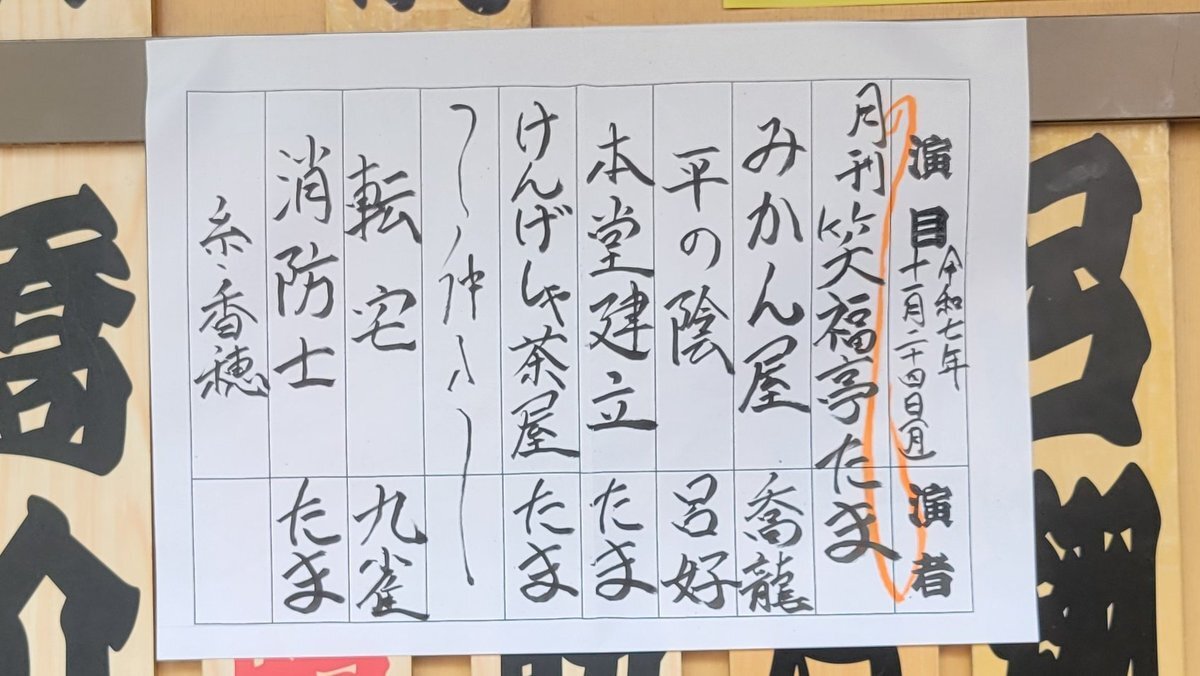 演目 演者
令和七年
十一月二十四日(月)
月刊笑福亭たま
みかん屋 喬龍
平の陰 呂好
本堂建立 たま
けんげしゃ茶屋 たま
〜仲入〜
転宅 九雀
消防士 たま
糸・香穂